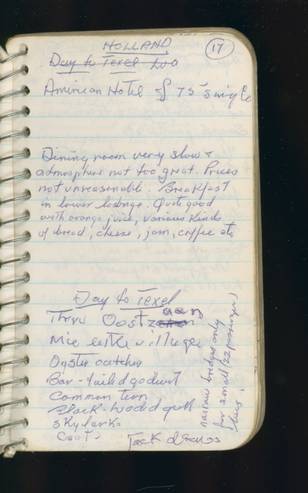 HOLLAND
17
Day to Texel
American Hotel f 75 single
Dining room very slow +
atmosphere not too great. Prices
not unreasonable. Breakfast
in lower lounge. Quite good
with orange juice, various kinds
of bread, cheese, jam, coffee etc
Day to Texel
Thru Oostzaan
Nice little village
Oyster catcher
Bar-tailed godwit
Common tern
Black-headed gull
Skylarks
Coots
Jackdaws
narrow bridge only
for small (22 passenger)
bus!